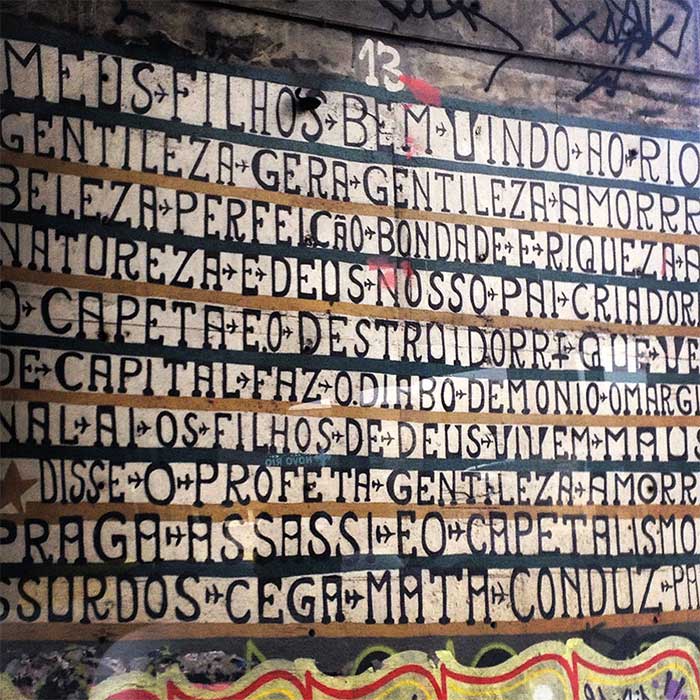 13
MEUS FILHOS BEM VINDO AO RIO
GENTILEZA GERA GENTILEZA AMORRR
BELEZA PERFEIÇÃO BONDADE E RIQUEZA A
NATUREZA E DEUS NOSSO PAI CRIADOR
O CAPETA E O DESTRUIDORRR QUE VE
DE CAPITAL FAZ O DIABO DEMONIO O MARGI
NAL AI OS FILHOS DE DEUS VIVEM MAUS
DISSE O PROFETA GENTILEZA AMORR
PRAGA ASSASSI E O CAPETALISMO
SSURDOS CEGA MATA CONDUZ PA